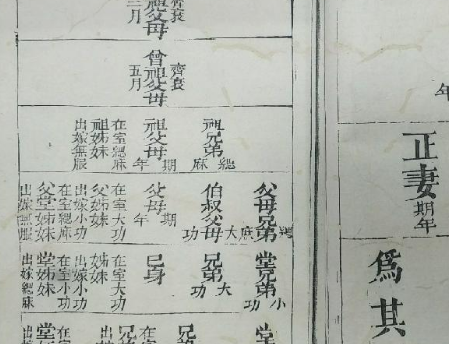 齊衰
三月
祖父母
齊衰
曾祖父母
五月
祖兄弟
緦麻
祖父母
期年
在室緦麻
祖姊妹
出嫁無服
父堂兄弟
緦麻
伯叔父母
大功
父母
期年
在室大功
父姊妹
出嫁小功
在室緦麻
父堂姊妹
出嫁無服
堂兄弟
小功
兄弟
大功
己身
在室大功
姊妹
出嫁小功
在室小功
堂姊妹
出嫁緦麻
年
正妻
期年
為其